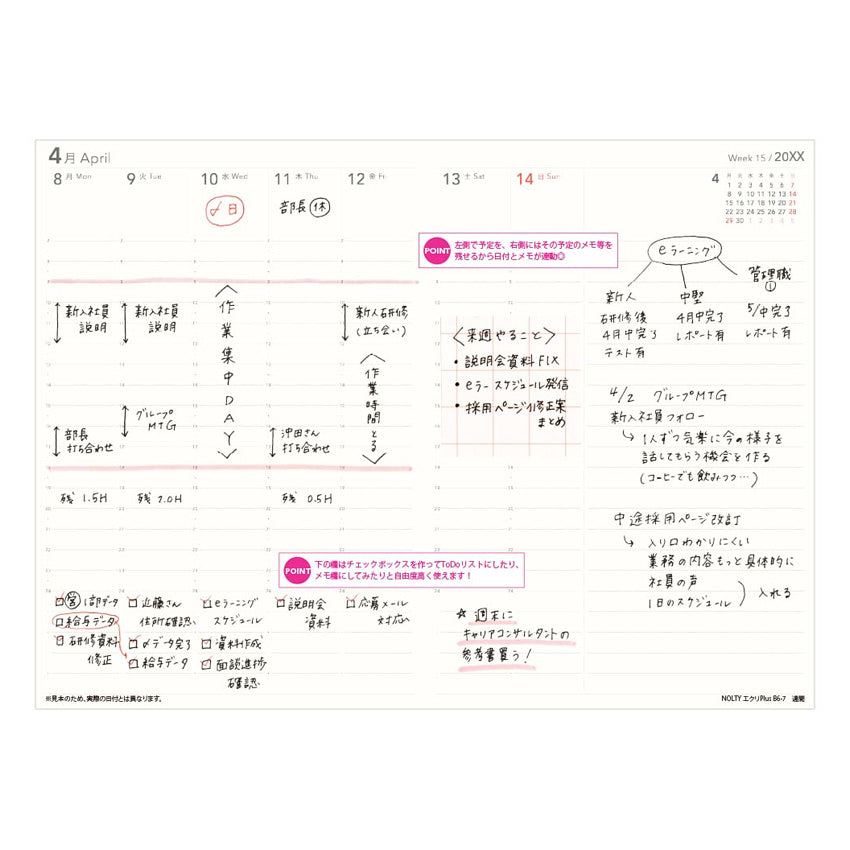 4月 April
Week 15 / 20XX
8 月 Mon
9 火 Tue
10 水 Wed
11 木 Thu
12 金 Fri
13 土 Sat
14 日 Sun
4
月 火 水 木 金 土 日
1 2 3 4 5 6 7
8 9 10 11 12 13 14
15 16 17 18 19 20 21
22 23 24 25 26 27 28
29 30
〆日
部長 休
POINT
左側で予定を、右側にはその予定のメモ等を
残せるから日付とメモが連動◎
新入社員
説明
部長
打ち合わせ
残 1.5H
新入社員
説明
グループ
MTG
残 2.0H
〈作業集中DAY〉
沖田さん
打ち合わせ
残 0.5H
新人研修
(立ち会い)
〈作業時間とる〉
〈来週やること〉
・説明会資料FIX
・eラースケジュール発信
・採用ページ修正案
まとめ
eラーニング
新人
研修後
4月中完了
テスト有
中堅
4月中完了
レポート有
管理職
①
5/中完了
レポート有
4/2 グループMTG
新入社員フォロー
↳ 1人ずつ気楽に今の様子を
話してもらう機会を作る
(コーヒーでも飲みつつ…)
中途採用ページ改訂
↳ 入り口わかりにくい
業務の内容もっと具体的に
社員の声
1日のスケジュール
入れる
POINT
下の欄はチェックボックスを作ってToDoリストにしたり、
メモ欄にしてみたりと自由度高く使えます！
☑営1部データ
□給与データ
☑研修資料
修正
☑近藤さん
住所確認
☑〆データ完了
☑給与データ
☑eラーニング
スケジュール
☑資料作成
☑面談進捗
確認
☑説明会
資料
☑応募メール
対応
☆週末に
キャリアコンサルタントの
参考書買う！
※見本のため、実際の日付とは異なります。
NOLTY エクリPlus B6-7 週間